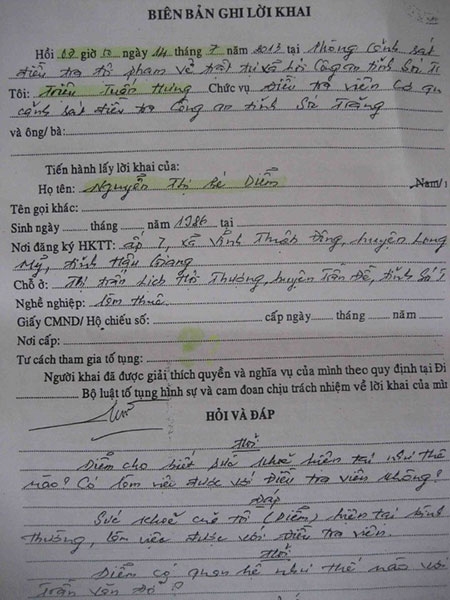 BIÊN BẢN GHI LỜI KHAI
Hồi 07 giờ 10 ngày 14 tháng 7 năm 2013 tại Phòng Cảnh sát
điều tra tội phạm về trật tự xã hội Công an tỉnh Sóc T
Tôi: Triệu Tuấn Hưng Chức vụ Điều tra viên Cơ qu
cảnh sát điều tra Công an tỉnh Sóc Trăng
và ông/ bà:
Tiến hành lấy lời khai của:
Họ tên: Nguyễn Thị Bé Diễm Nam/
Tên gọi khác:
Sinh ngày tháng năm 1986 tại
Nơi đăng ký HKTT: ấp 7, xã Vĩnh Thuận Đông, huyện Long
Mỹ, tỉnh Hậu Giang
Chỗ ở: Thị trấn Lịch Hội Thượng, huyện Trần Đề, tỉnh Sóc T
Nghề nghiệp: làm thuê
Giấy CMND/ Hộ chiếu số: cấp ngày tháng năm
Nơi cấp:
Tư cách tham gia tố tụng:
Người khai đã được giải thích quyền và nghĩa vụ của mình theo quy định tại Đi
Bộ luật tố tụng hình sự và cam đoan chịu trách nhiệm về lời khai của mìn
HỎI VÀ ĐÁP
Hỏi
Diễm cho biết sức khoẻ hiện tại như thế
nào? Có làm việc được với Điều tra viên không?
Đáp
Sức khoẻ của tôi (Diễm) hiện tại bình
thường, làm việc được với Điều tra viên.
Hỏi
Diễm có quan hệ như thế nào với
Trần Văn Đở?